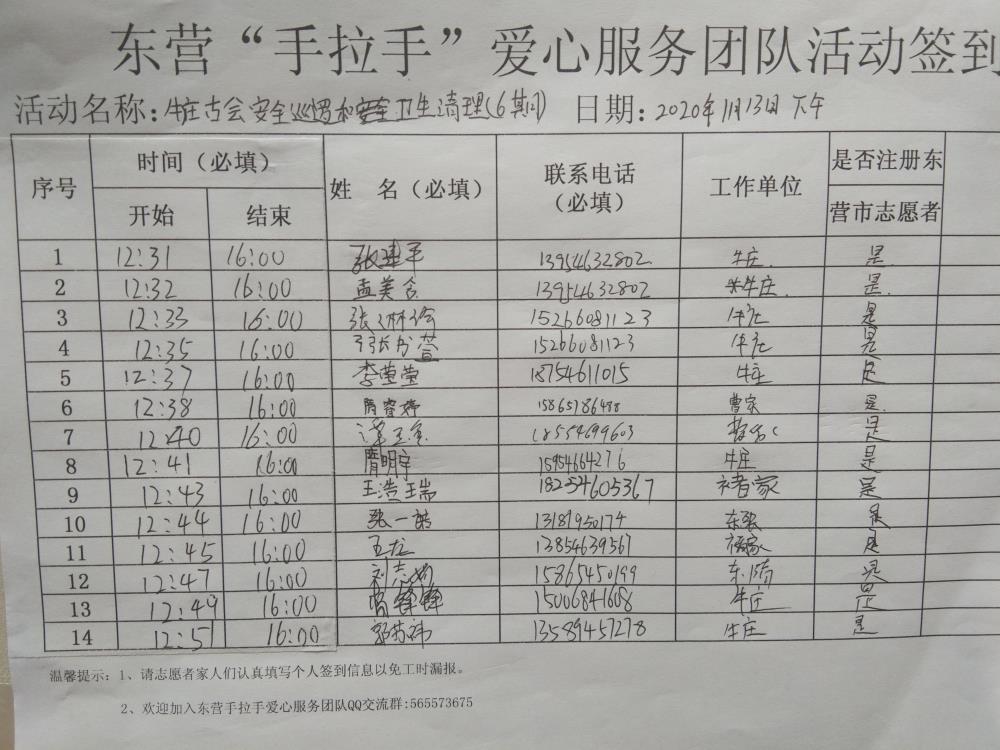 东营“手拉手”爱心服务团队活动签到
活动名称:牛庄古会安全巡逻和安全卫生清理(6期) 日期:2020年11月13日下午
序号 时间(必填) 姓 名(必填) 联系电话 工作单位 是否注册东
开始 结束 (必填) 营市志愿者
1 12:31 16:00 张建平 13954632802 牛庄 是
2 12:32 16:00 孟美含 13954632802 牛庄 是
3 12:33 16:00 张 15266081123 牛庄 是
4 12:35 16:00 张 萱 15266081123 牛庄 是
5 12:37 16:00 李莹莹 18754611015 牛庄 是
6 12:38 16:00 15865786488 曹家 是
7 12:40 16:00 18554699603 是
8 12:41 16:00 明宇 15954664276 牛庄 是
9 12:43 16:00 王浩瑞 18254605367 褚家 是
10 12:44 16:00 张一 13181950174 东张 是
11 12:45 16:00 王龙 13854639567 是
12 12:47 16:00 刘志 15865450199 东 是
13 12:49 16:00 15006841608 牛庄 是
14 12:51 16:00 郭 13589457278 牛庄 是
温馨提示:1、请志愿者家人们认真填写个人签到信息以免工时漏报。
2、欢迎加入东营手拉手爱心服务团队QQ交流群:565573675